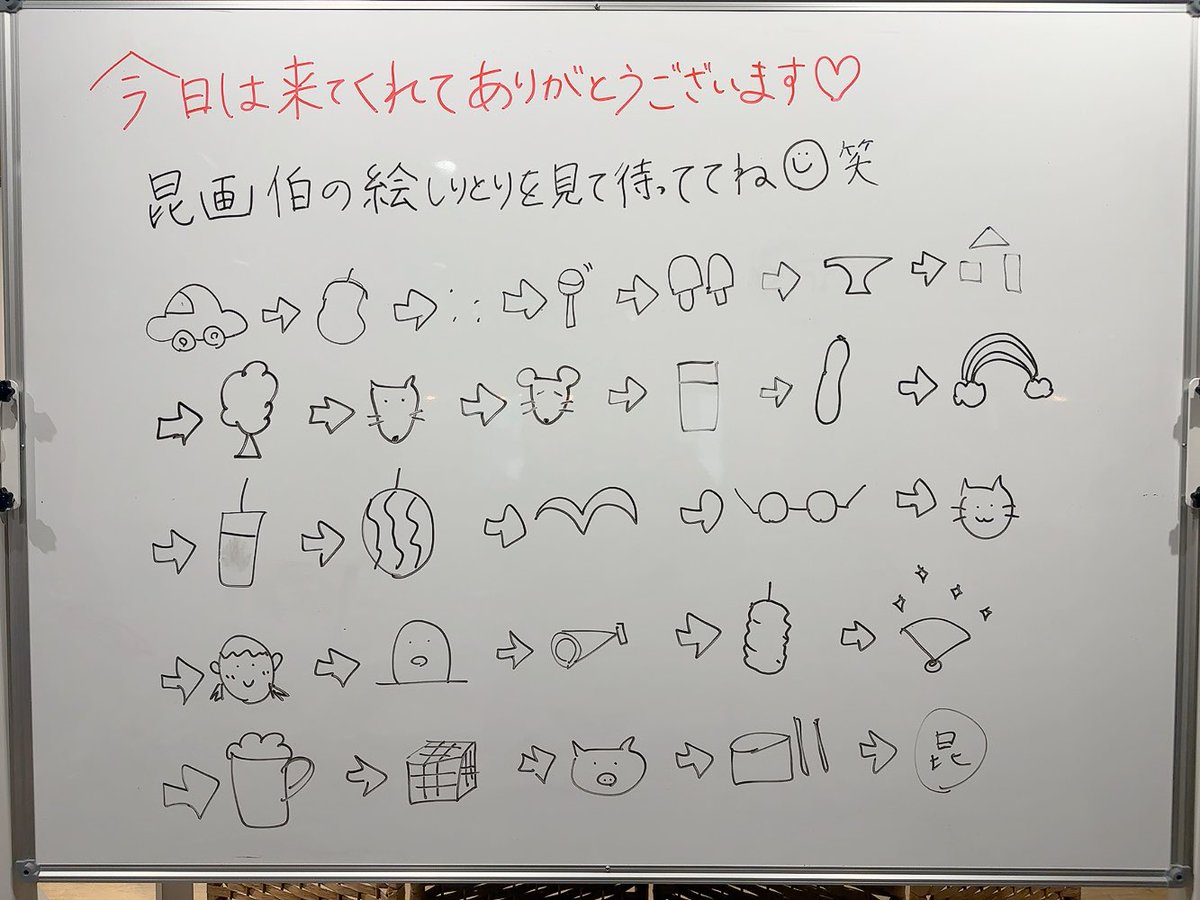 今日は来てくれてありがとうございます♡
昆画伯の絵しりとりを見て待っててね☺笑
昆